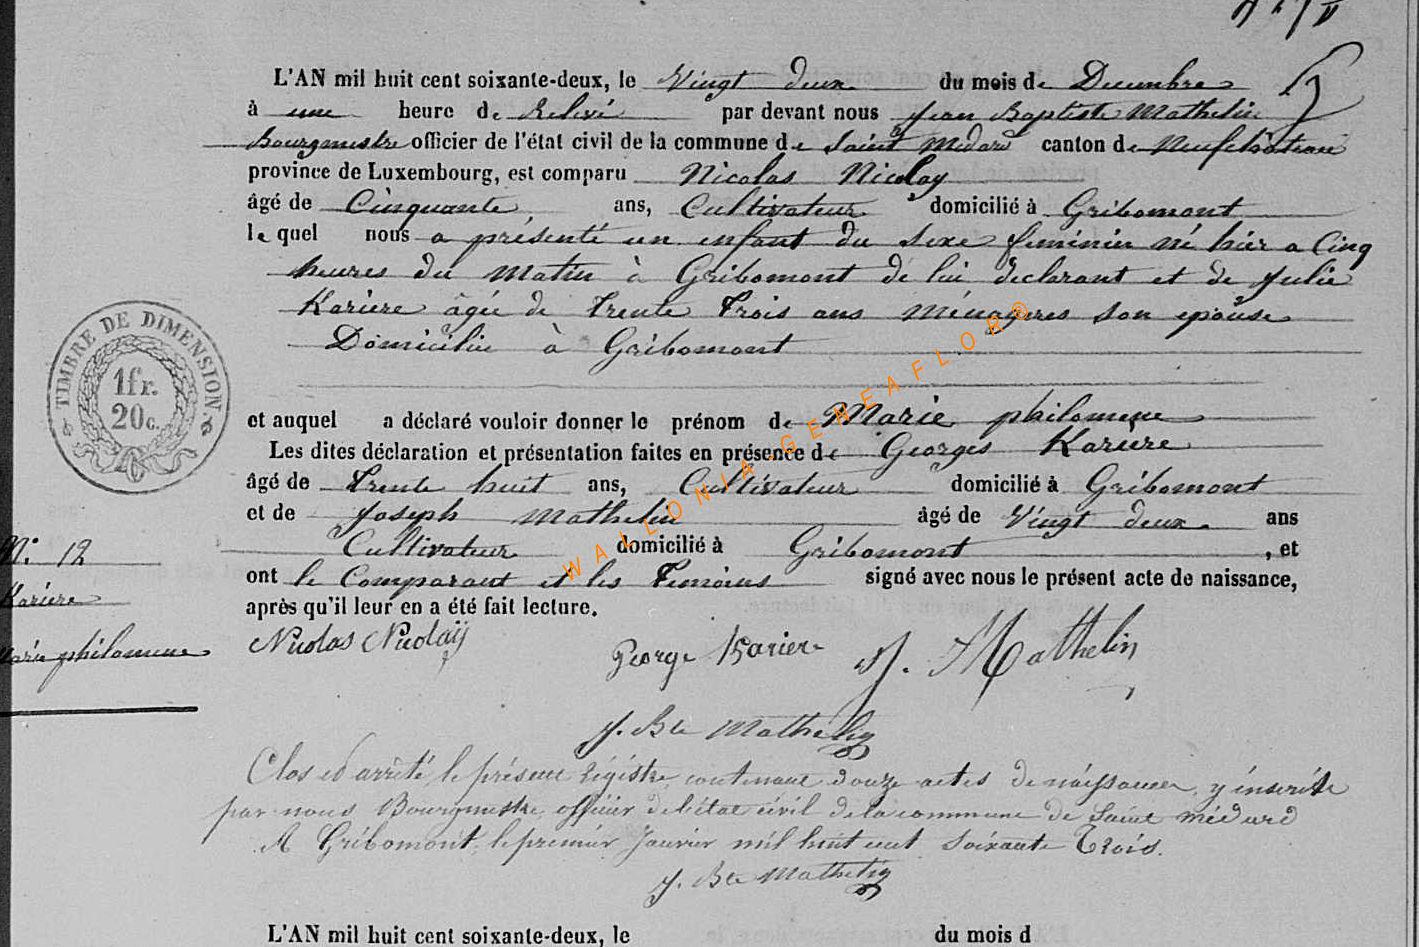 L'AN mil huit cent soixante-deux, le Vingt deux du mois de Decembre
à une heure de Relevé par devant nous Jean Baptiste Mathelin
Bourgmestre officier de l'état civil de la commune de Saint Médard canton de Neufchâteau
province de Luxembourg, est comparu Nicolas Nicolay
âgé de Cinquante ans, Cultivateur domicilié à Gribomont
le quel nous a présenté un enfant du sexe feminin né hier a Cinq
heures du matin à Gribomont de lui declarant et de Julie
Kariere âgée de Trente Trois ans Ménagères son epouse
Domiciliée à Gribomont
TIMBRE DE DIMENSION.
1fr.
20c.
et auquel a déclaré vouloir donner le prénom de Marie philomene
Les dites déclaration et présentation faites en présence de Georges Kariere
âgé de Trente huit ans, Cultivateur domicilié à Gribomont
et de Joseph Mathelin âgé de Vingt deux ans
Cultivateur domicilié à Gribomont , et
N: 12
ont le Comparant et les Temoins signé avec nous le présent acte de naissance,
Kariere
après qu'il leur en a été fait lecture.
Marie philomene
Nicolas Nicolaÿ George Kariere J. Mathelin
J. Bte Mathelin
Clos et arrêté le présent régistre contenant douze actes de naissance, y inscrits
par nous Bourgmestre officier de l'état civil de la commune de Saint médard
A Gribomont, le premier Janvier mil huit cent soixante Trois.
J. Bte Mathelin
L'AN mil huit cent soixante-deux, le du mois d
WALLONIA-GENEAFLOR®